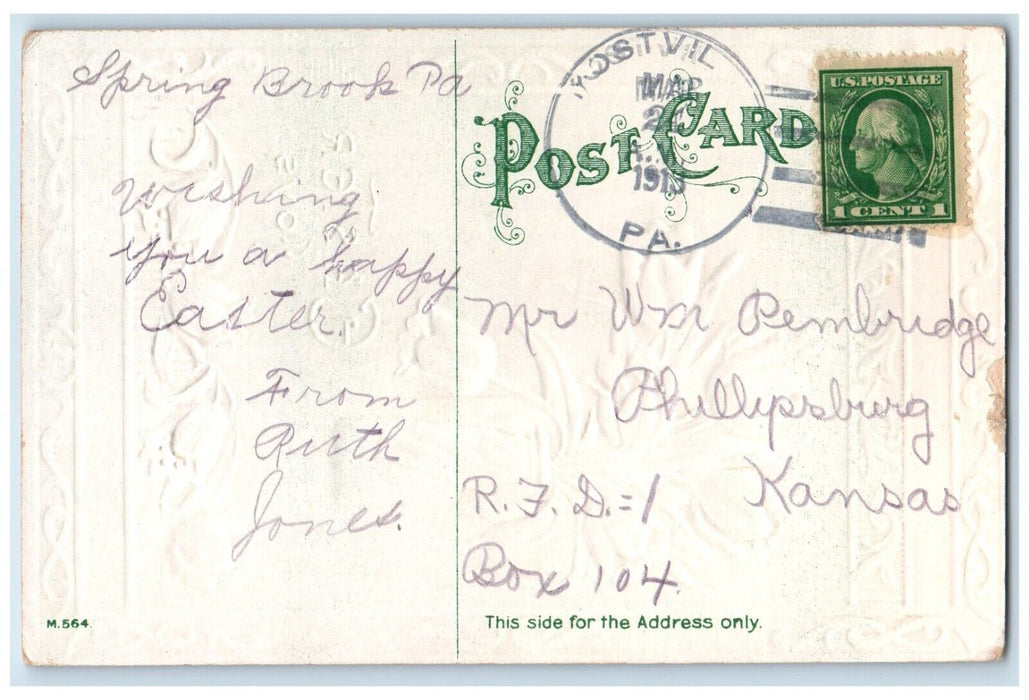 Spring Brook Pa
Wishing
you a happy
Easter.
From
Ruth
Jones.
M.564.
POST CARD
MAR
A.M.
PA.
U.S. POSTAGE
1 CENT 1
Mr Wm Pembridge
Phillypsburg
Kansas
R.F.D.=1
Box 104.
This side for the Address only.